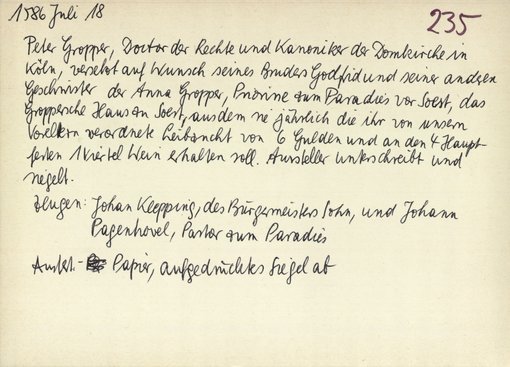 1586 Juli 18
235
Peter Gropper, Doctor der Rechte und Kanoniker der Domkirche in
Köln, versetzt auf Wunsch seines Bruders Godfrid und seiner anderen
Geschwister der Anna Gropper, Priorine zum Paradies vor Soest, das
Groppersche Haus zu Soest, aus dem sie jährlich die ihr von unsern
Voreltern verordnete Leibzucht von 6 Gulden und an den 4 Haupt-
festen 1 Viertel Wein erhalten soll. Aussteller unterschreibt und
siegelt.
Zeugen: Johan Klepping, des Bürgermeisters Sohn, und Johann
Pagenhovel, Pastor zum Paradies
Ausfert. - Papier, aufgedrücktes Siegel ab